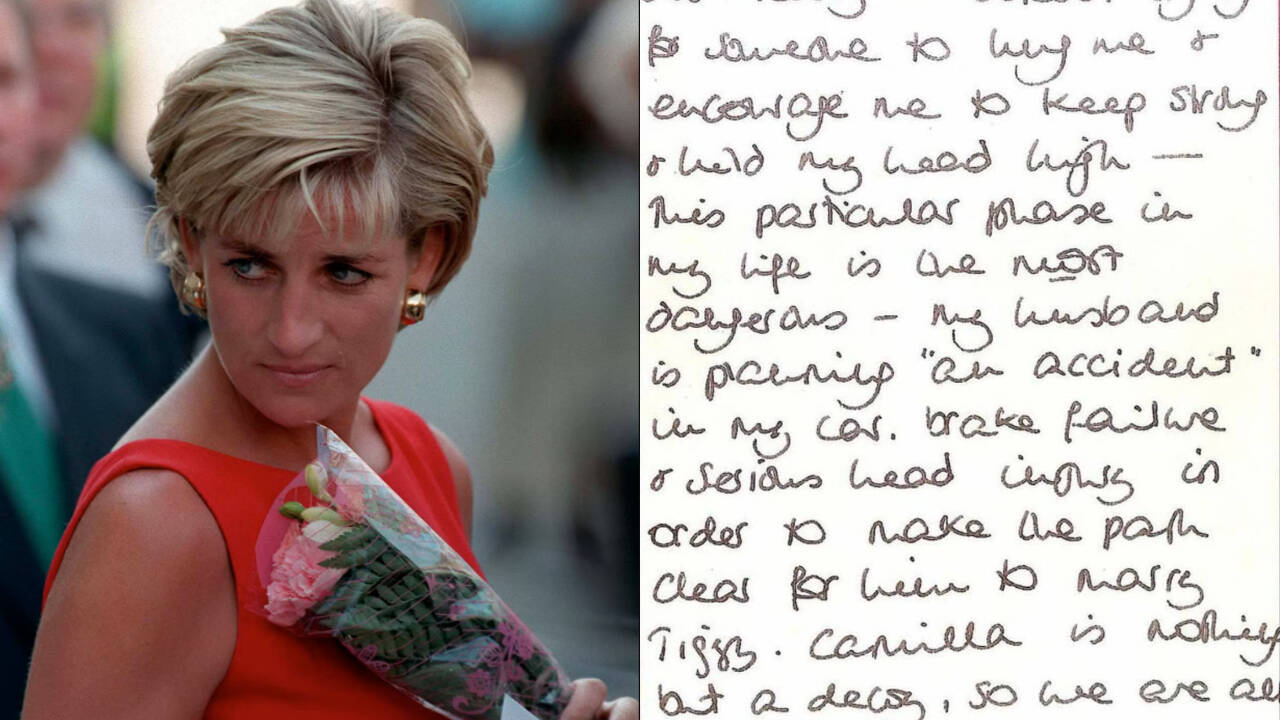 for someone to hug me &
encourage me to keep strong
& hold my head high —
This particular phase in
my life is the most
dangerous - my husband
is planning "an accident"
in my car. brake failure
& serious head injury in
order to make the path
clear for him to marry
Tiggy. Camilla is nothing
but a decoy, so we are